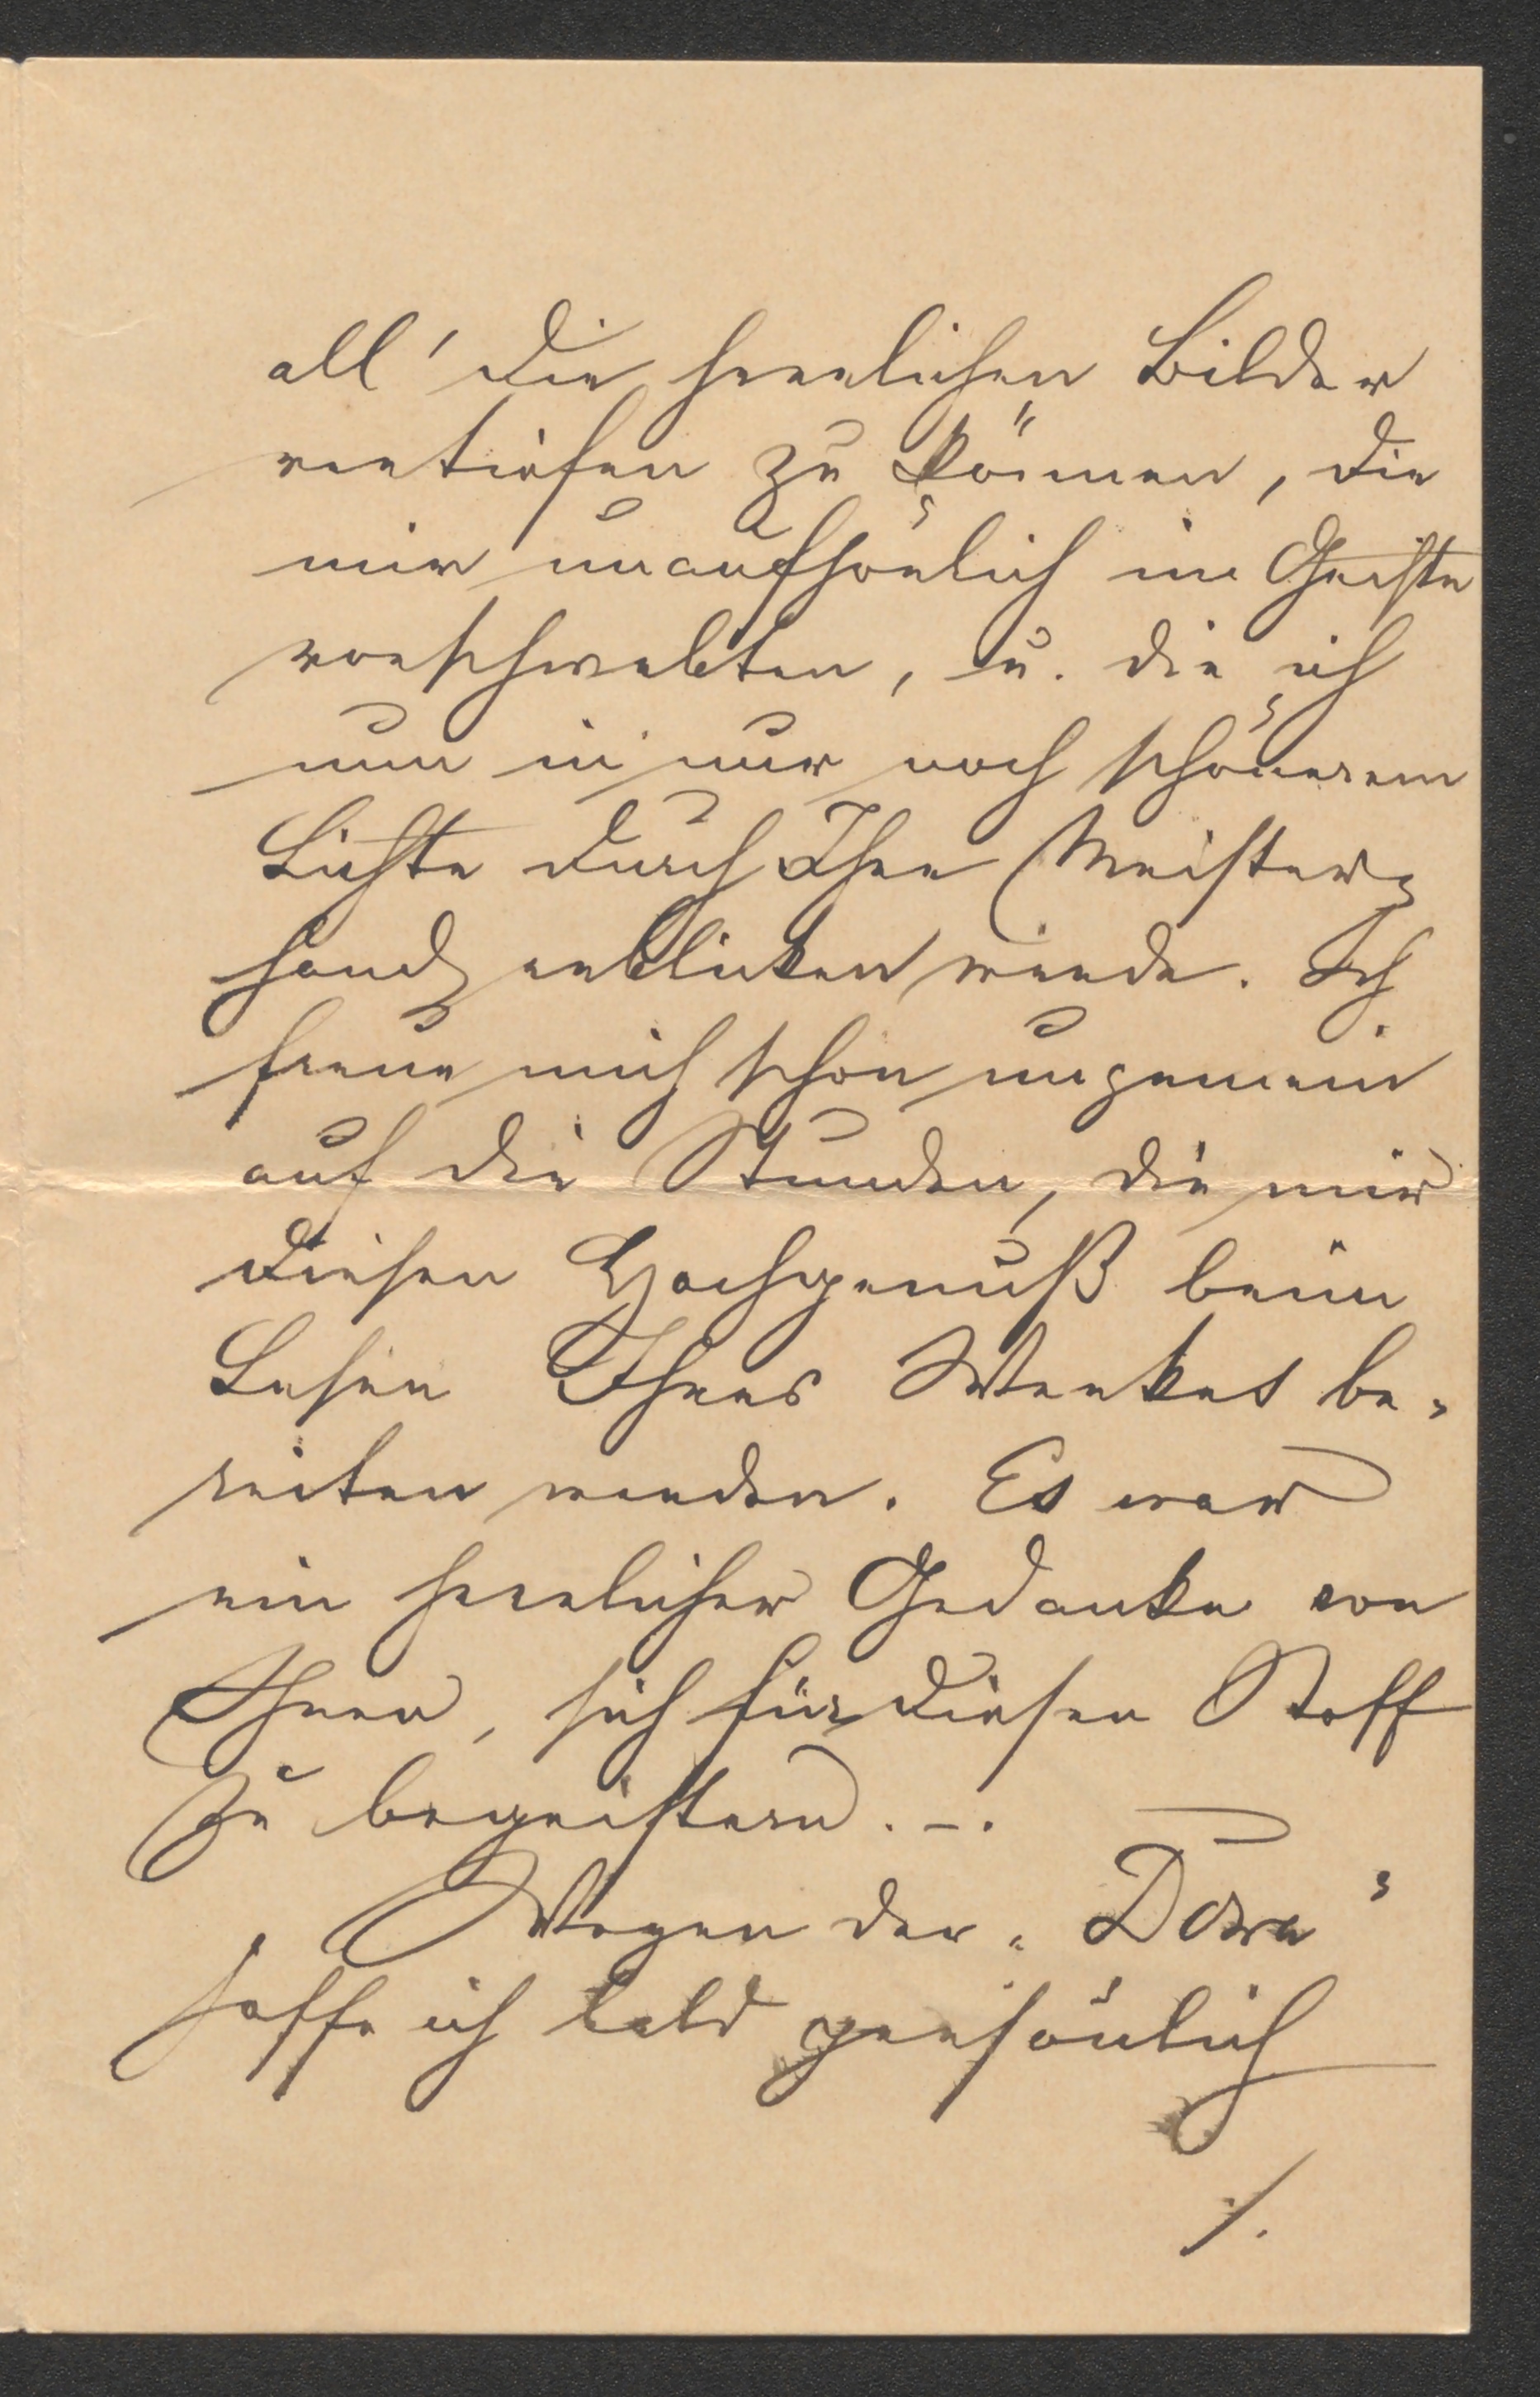 all' die herrlichen Bilder
vertiefen zu können, die
mir unaufhörlich im Geiste
vorschwebten, u. die ich
nun in nur noch schönerem
Lichte durch Ihre Meister=
hand erblicken werde. Ich
freue mich schon ungemein
auf die Stunden, die mir
diesen Hochgenuß beim
Lesen Ihres Werkes be-
reiten werden. Es war
ein herrlicher Gedanke von
Ihnen, sich für diesen Stoff
zu begeistern. -.
Wegen der „Dora"
hoffe ich bald persönlich
./.